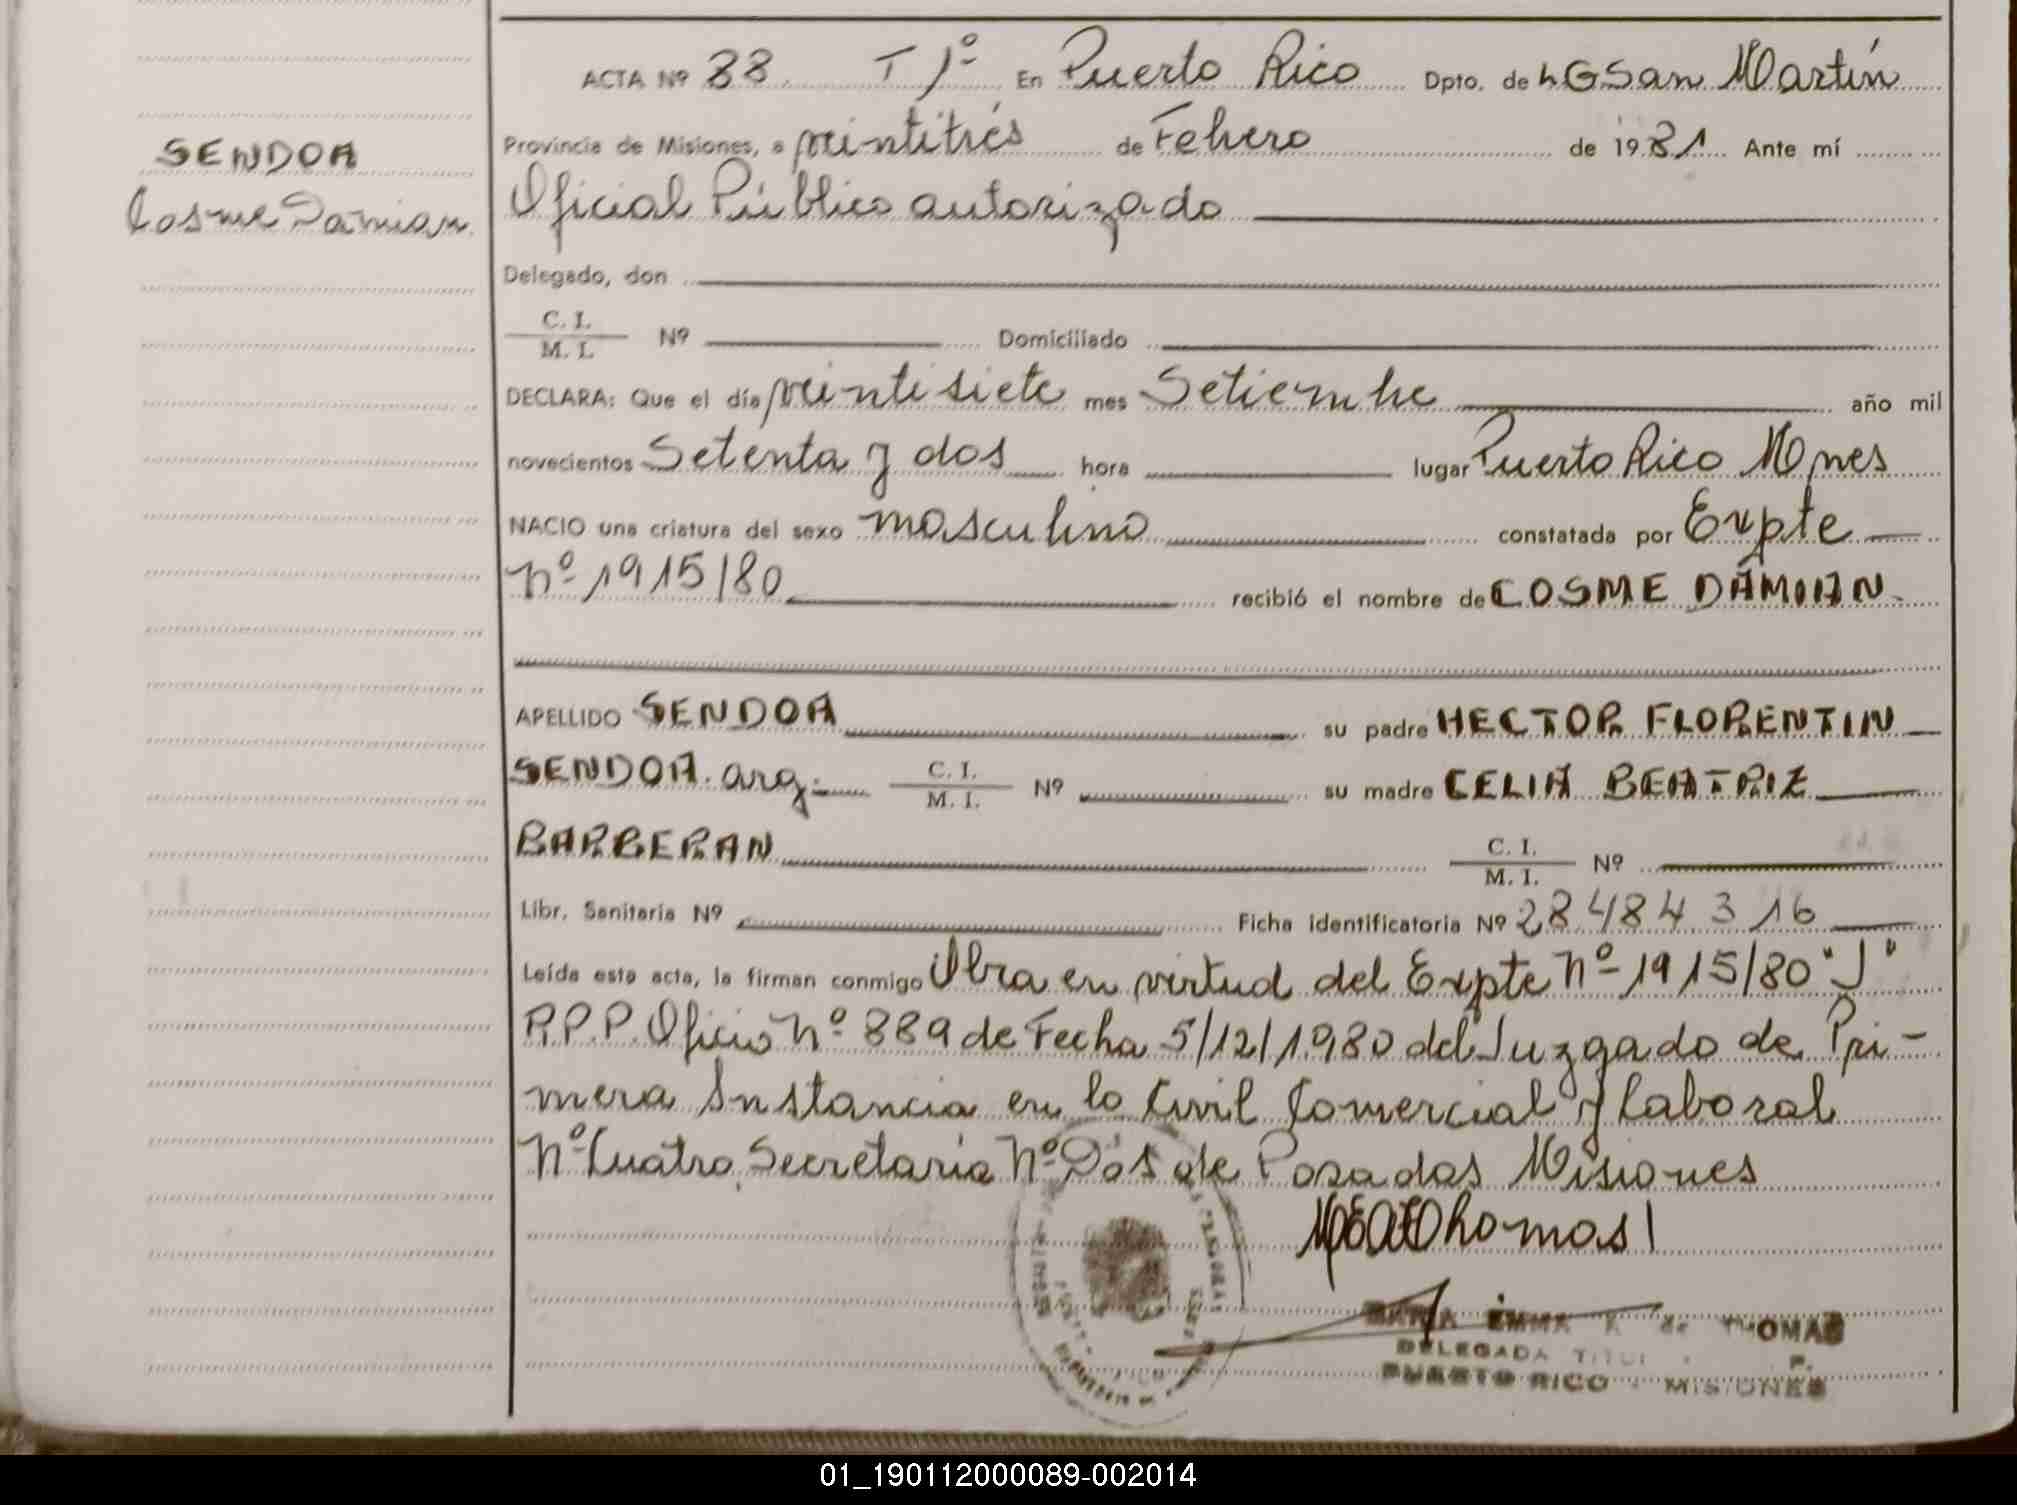 ACTA Nº 88 T 1º En Puerto Rico Dpto. de L G San Martín
Provincia de Misiones, a veintitrés de Febrero de 1981 Ante mí
SENDOA
Cosme Damian
Oficial Público autorizado
Delegado, don
C. I.
M. I. Nº Domiciliado
DECLARA: Que el día veintisiete mes Setiembre año mil
novecientos Setenta y dos hora lugar Puerto Rico Mnes
NACIO una criatura del sexo masculino constatada por Expte
Nº 1915/80 recibió el nombre de COSME DAMIAN
APELLIDO SENDOA su padre HECTOR FLORENTIN
SENDOA. arg. C. I. M. I. Nº su madre CELIA BEATRIZ
BARBERAN C. I. M. I. Nº
Libr. Sanitaria Nº Ficha identificatoria Nº 28484316
Leída esta acta, la firman conmigo Obra en virtud del Expte Nº 1915/80 "J"
P.P.P. Oficio Nº 889 de Fecha 5/12/1980 del Juzgado de Pri-
mera Instancia en lo Civil Comercial y Laboral
Nº Cuatro, Secretaria Nº Dos de Posadas Misiones
MARIA EMMA K de THOMAS
DELEGADA
PUERTO RICO - MISIONES
01_190112000089-002014